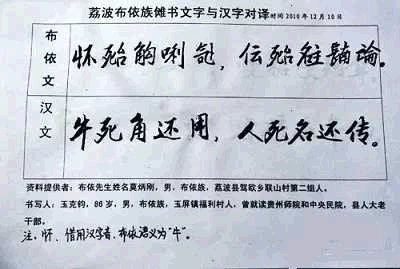 荔波布依族傩书文字与汉字对译 时间 2010年12月10日
布依文
怀殆
唎
汉文
牛死角还用，人死名还传。
资料提供者：布依先生姓名莫炳刚，男，布依族，荔波县驾欧乡联山村第二组人。
书写人：玉克钧，86岁，男，布依族，玉屏镇福利村人，曾就读贵州师院和中央民院，县人大老
干部。
注：怀、借用汉字音、布依语义为"牛"。